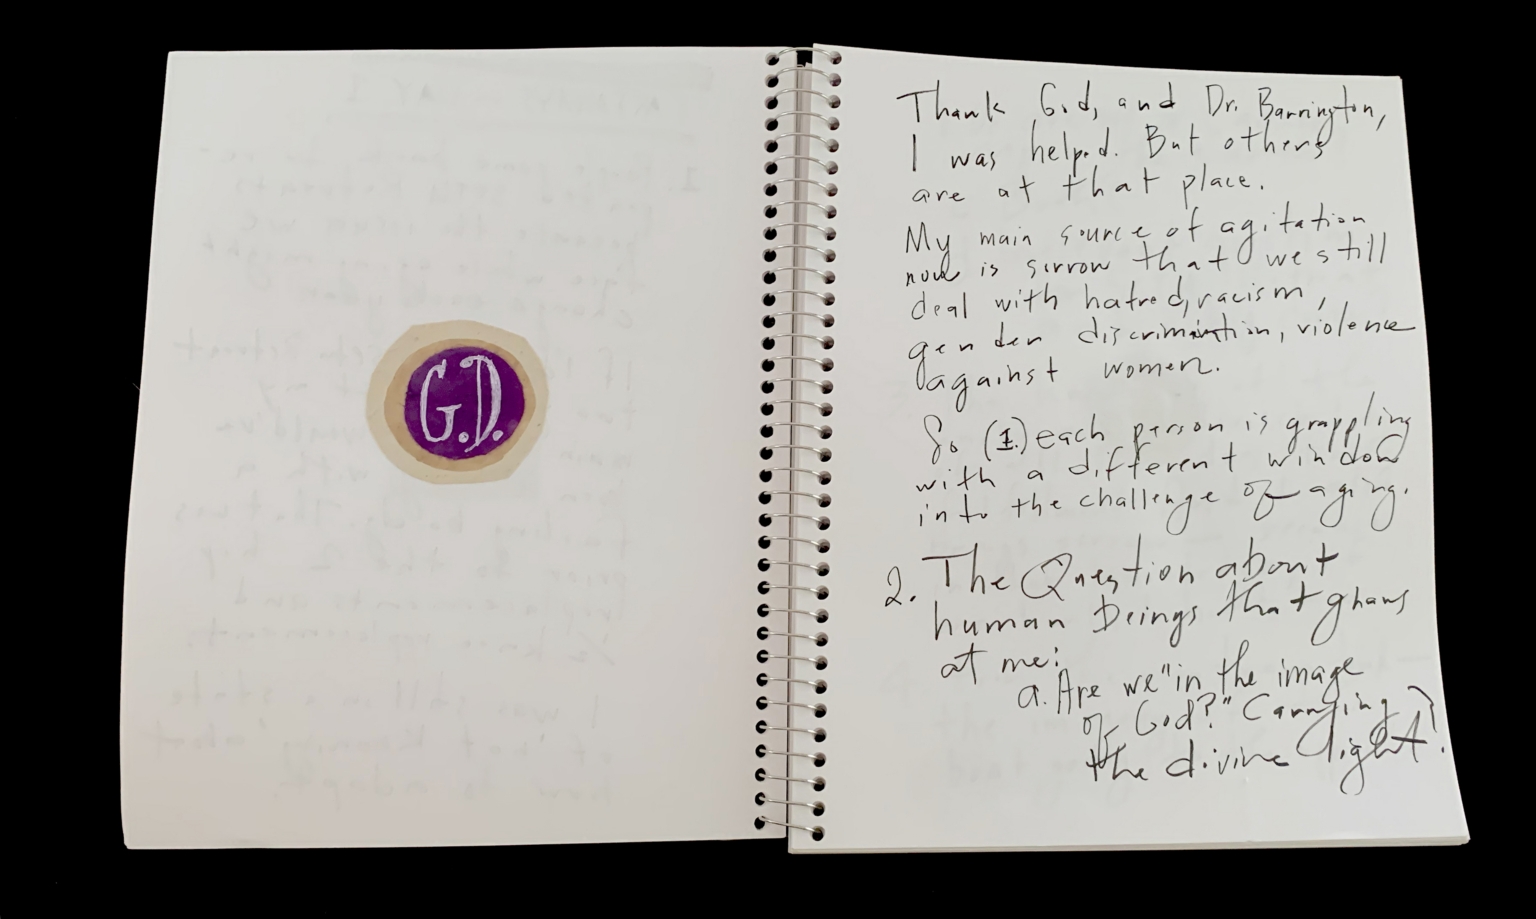 G.D.
Thank God, and Dr. Barrington,
I was helped. But others
are at that place.
My main source of agitation
now is sorrow that we still
deal with hatred, racism,
gender discrimination, violence
against women.
So (1.) each person is grappling
with a different window
into the challenge of aging.
2. The Question about
human beings that gnaws
at me:
a. Are we "in the image
of God?" Carrying
the divine light?